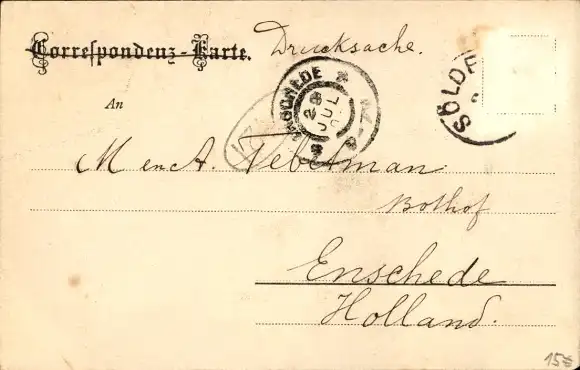 Correspondenz-Karte.
Drucksache.
An
ENSCHEDE
29
JUL
SÖLD
M en A. Tebetman
Bothof
Enschede
Holland.
15